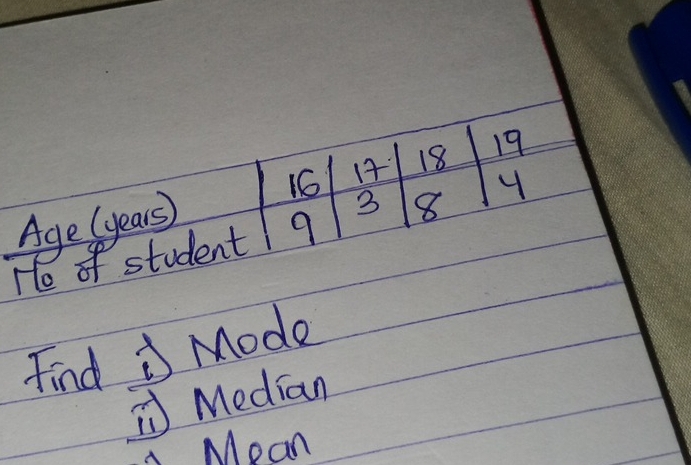 Age (years) | 16 | 17 | 18 | 19
No of student | 9 | 3 | 8 | 4
Find i) Mode
ii) Median
Mean